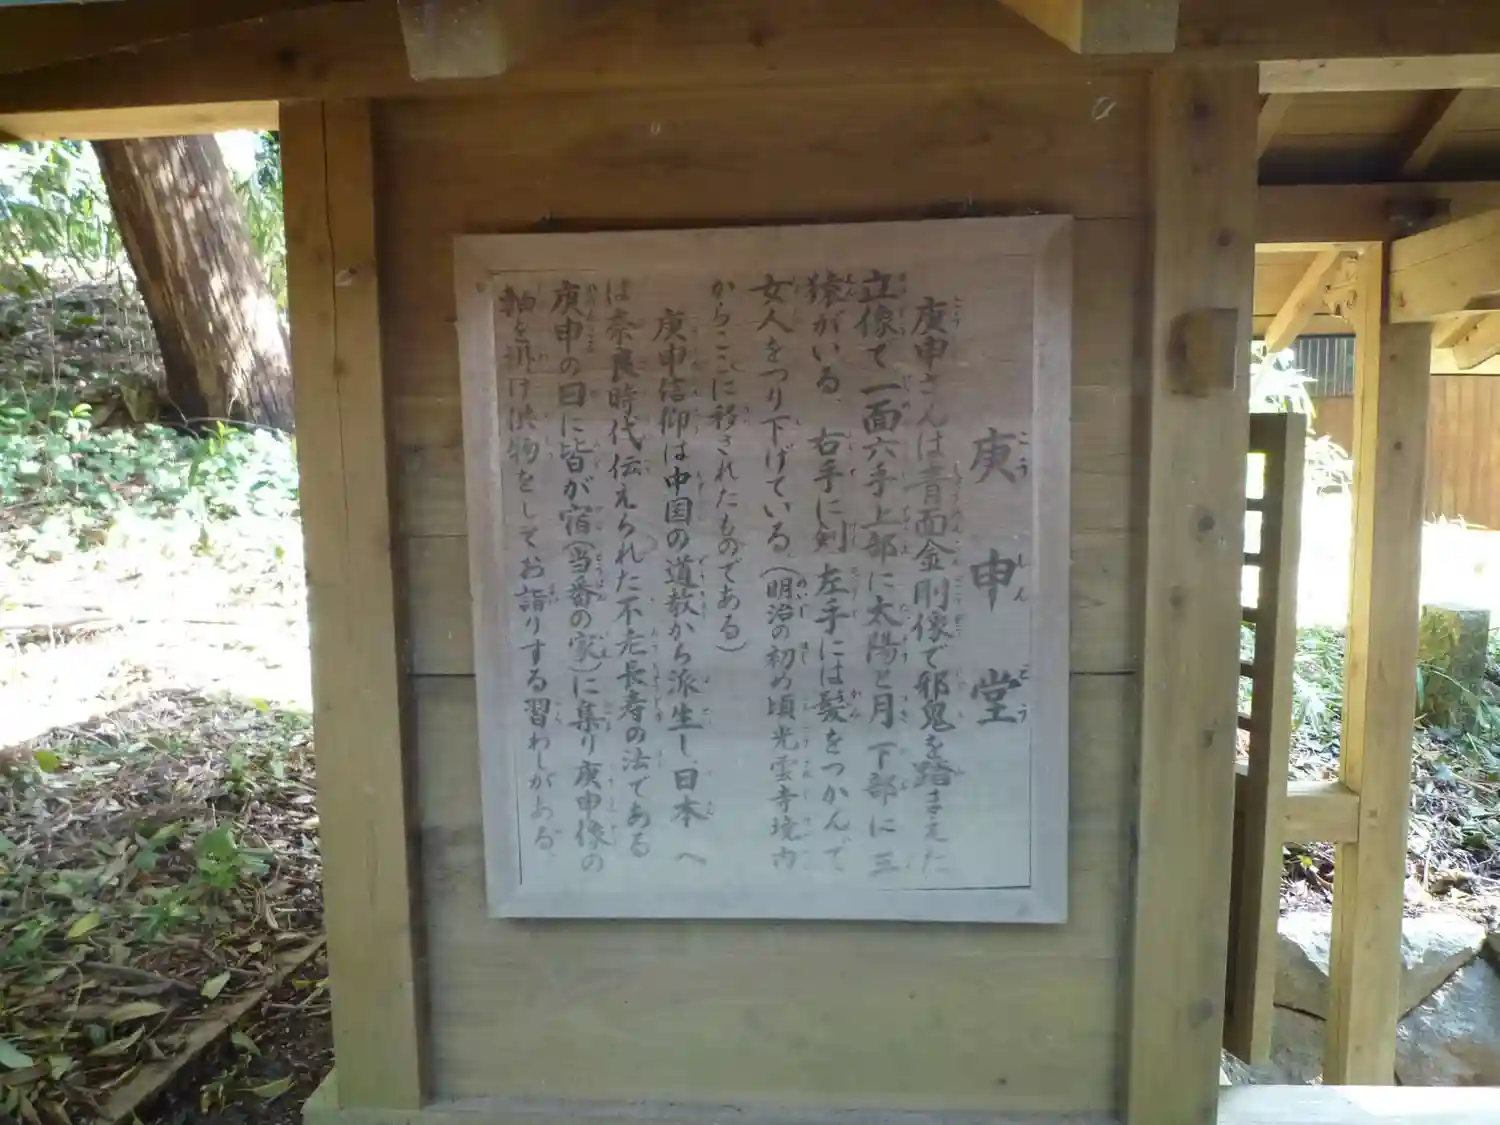 庚申堂
庚申さんは青面金剛像で邪鬼を踏まえた
立像で一面六手上部に太陽と月下部に三
猿がいる、右手に剣左手には髪をつかんで
女人をつり下げている、(明治の初め頃光雲寺境内
からここに移されたものである)
庚申信仰は中国の道教から派生し、日本へ
は奈良時代伝えられた不老長寿の法である
庚申の日に皆が宿(当番の家)に集り庚申像の
軸を掛け供物をしてお詣りする習わしがある、